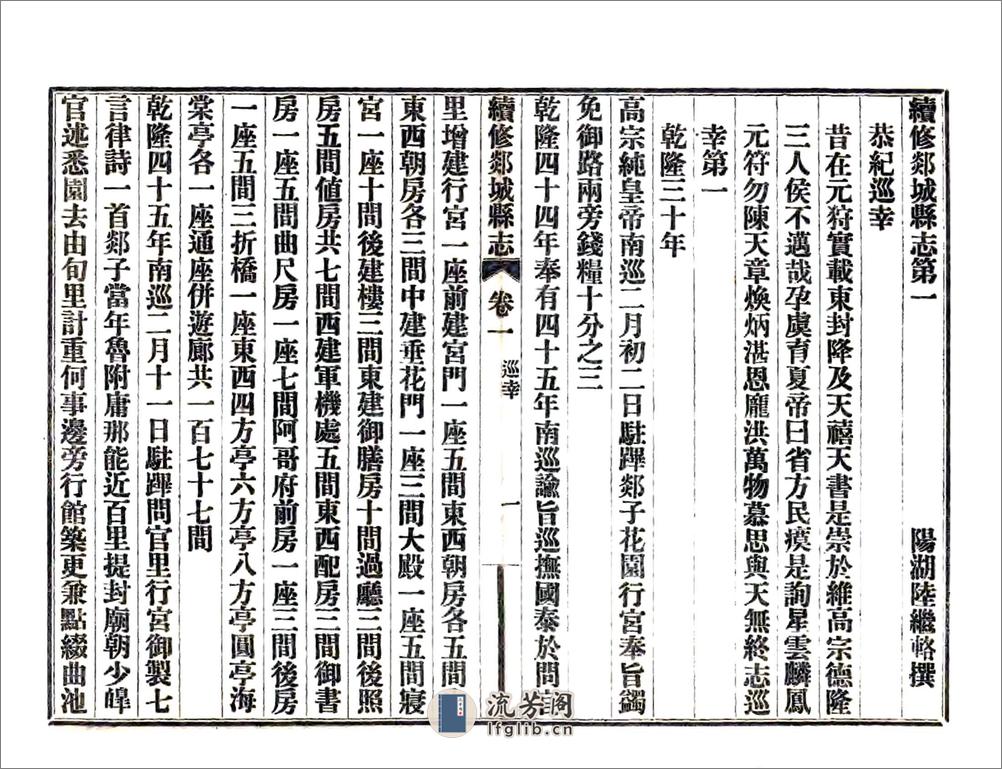 續修郯城縣志第一 陽湖陸繼輅撰
恭紀巡幸
昔在元狩實載東封降及天禧天書是崇於維高宗德隆
三人侯不邁哉孕虞育夏帝曰省方民瘼是詢星雲麟鳳
元符勿陳天章煥炳湛恩龐洪萬物慕思與天無終志巡
幸第一
乾隆三十年
高宗純皇帝南巡二月初二日駐蹕郯子花園行宮奉旨蠲
免御路兩旁錢糧十分之三
乾隆四十四年奉有四十五年南巡諭旨巡撫國泰於問
續修郯城縣志 卷一 巡幸 一
里增建行宮一座前建宮門一座五間東西朝房各五間
東西朝房各三間中建垂花門一座三間大殿一座五間寢
宮一座十間後建樓三間東建御膳房十間過廳三間後照
房五間值房共七間西建軍機處五間東西配房三間御書
房一座五間曲尺房一座七間阿哥府前房一座三間後房
一座五間三折橋一座東西四方亭六方亭八方亭圓亭海
棠亭各一座通座併遊廊共一百七十七間
乾隆四十五年南巡二月十一日駐蹕問官里行宮御製七
言律詩一首郯子當年魯附庸那能近百里提封廟朝少皞
官述悉園去由旬里計重何事邊旁行館築更兼點綴曲池
流芳閣
lfglib.cn